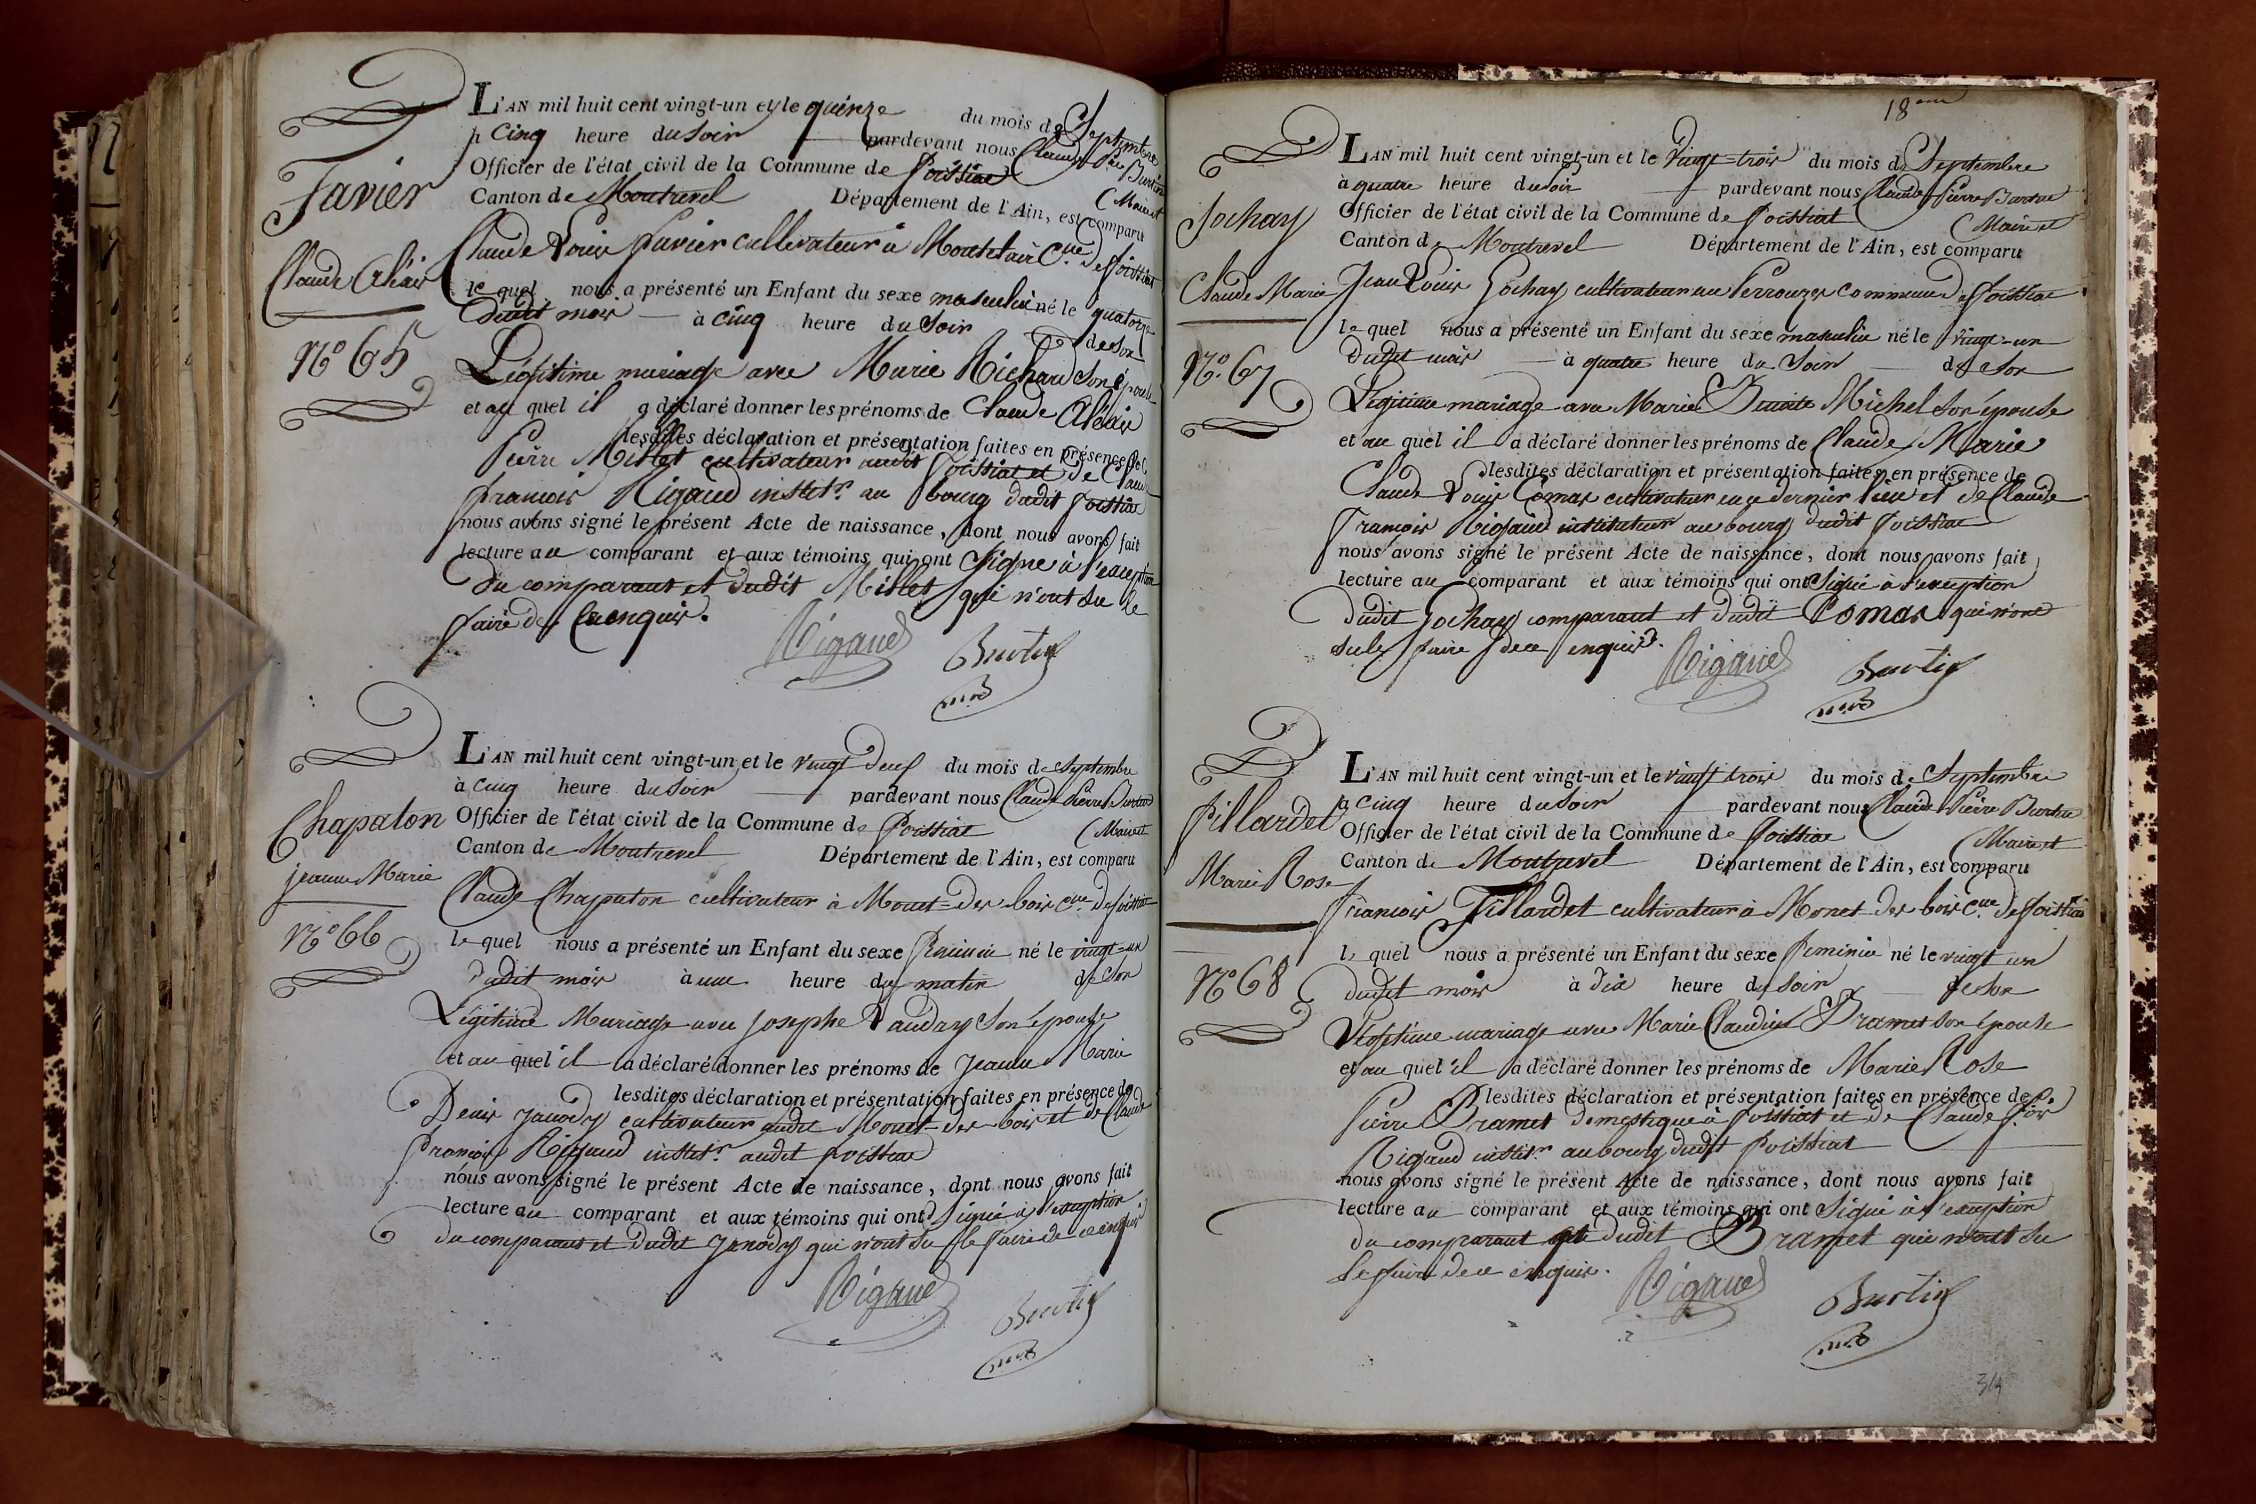 L'AN mil huit cent vingt-un et le quinze du mois de Septembre
à Cinq heure du Soir pardevant nous Claude Pre Burtin
Officier de l'état civil de la Commune de Foissiat (Maire et
Canton de Montrevel Département de l'Ain, est comparu
Favier
Claude Louis Favier cultivateur à Cne de Foissiat
Claude Alexis
le quel nous a présenté un Enfant du sexe masculin né le quatorze
dudit mois à cinq heure du Soir de son
No 65
Légitime mariage avec Marie Richard son épouse
et au quel il a déclaré donner les prénoms de Claude Alexis
lesdites déclaration et présentation faites en présence de
Pierre Millet cultivateur audit Foissiat et de Claude
francois Rigaud instit.r au bourg dudit foissiat
nous avons signé le présent Acte de naissance, dont nous avons fait
lecture au comparant et aux témoins qui ont Signé à l'exception
du comparant et dudit Millet qui n'ont su le
faire de ce enquis.
Rigaud Burtin
L'AN mil huit cent vingt-un et le vingt deux du mois de Septembre
à cinq heure du Soir pardevant nous Claude Pierre Burtin
Chapaton
Officier de l'état civil de la Commune de Foissiat (Maire et
Canton de Montrevel Département de l'Ain, est comparu
jeanne Marie
Claude Chapaton cultivateur à Monet des bois Cne de foissiat
No 66
le quel nous a présenté un Enfant du sexe féminin né le vingt-un
dudit mois à une heure du matin de son
Légitime Mariage avec Josephe Vaudry son épouse
et au quel il a déclaré donner les prénoms de Jeanne Marie
lesdites déclaration et présentation faites en présence de
Denis Janody cultivateur audit Monet des bois et de Claude
francois Rigaud instit.r audit foissiat
nous avons signé le présent Acte de naissance, dont nous avons fait
lecture au comparant et aux témoins qui ont Signé à l'exception
du comparant et dudit Janody qui n'ont su le faire de ce enquis
Rigaud Burtin
18eme
L'AN mil huit cent vingt-un et le vingt-trois du mois de Septembre
à quatre heure du soir pardevant nous Claude Pierre Burtin
Jochay
Officier de l'état civil de la Commune de foissiat (Maire et
Canton de Montrevel Département de l'Ain, est comparu
Claude Marie
Jean Louis Jochay cultivateur au Perrouzes Commune de foissiat
le quel nous a présenté un Enfant du sexe masculin né le vingt-un
dudit mois à quatre heure du Soir de son
No 67
Légitime mariage avec Marie Benoite Michel son épouse
et au quel il a déclaré donner les prénoms de Claude Marie
lesdites déclaration et présentation faites en présence de
Claude Louis Comas cultivateur en ce dernier lieu et de Claude
francois Rigaud instituteur au bourg dudit foissiat
nous avons signé le présent Acte de naissance, dont nous avons fait
lecture au comparant et aux témoins qui ont Signé à l'exception
dudit Jochay comparant et dudit Comas qui n'ont
su le faire de ce enquis.
Rigaud Burtin
L'AN mil huit cent vingt-un et le vingt trois du mois de Septembre
à Cinq heure du Soir pardevant nous Claude Pierre Burtin
Pillardet
Officier de l'état civil de la Commune de foissiat (Maire et
Canton de Montrevel Département de l'Ain, est comparu
Marie Rose
francois Pillardet cultivateur à Monet des bois Cne de foissiat
le quel nous a présenté un Enfant du sexe féminin né le vingt un
No 68
dudit mois à dix heure du soir de son
Légitime mariage avec Marie Claudine Bramet son épouse
et au quel il a déclaré donner les prénoms de Marie Rose
lesdites déclaration et présentation faites en présence de
Pierre Bramet domestique à foissiat et de Claude f.ois
Rigaud instit.r au bourg dudit foissiat
nous avons signé le présent Acte de naissance, dont nous avons fait
lecture au comparant et aux témoins qui ont Signé à l'exception
du comparant et dudit Bramet qui n'ont su
le faire de ce enquis.
Rigaud Burtin
314